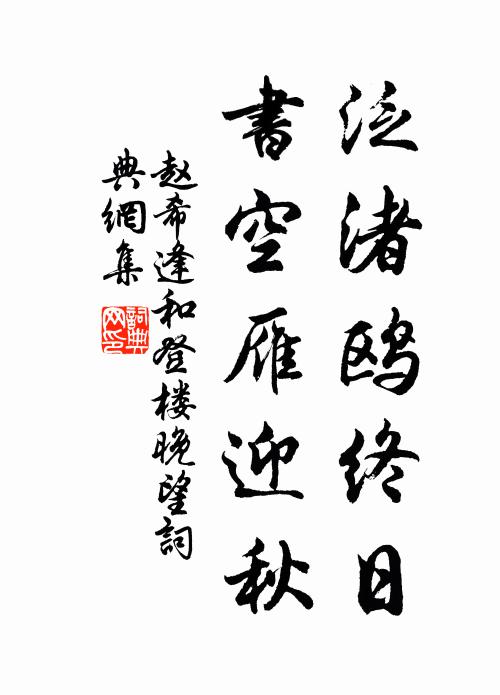 泛渚鸥终日
書空雁迎秋
赵希逢和登楼晚望詞
典網集
詞典
网印